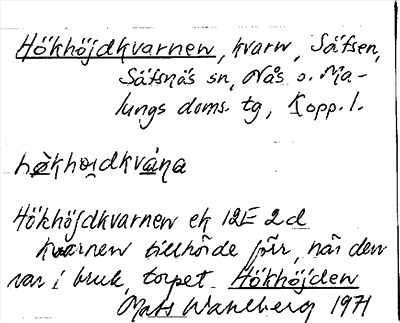 Hökhöjdkvarnen, kvarn, Säfsen,
Säfsnäs sn, Nås o. Ma-
lungs doms. tg, Kopp. l.
høkhoɪdkvàṇa
Hökhöjdkvarnen ek 12E 2d
Kvarnen tillhörde förr, när den
var i bruk, torpet Hökhöjden
Mats Wahlberg 1971